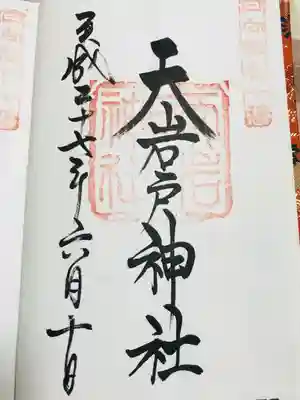 天岩戸神社
平成二十七年六月十日